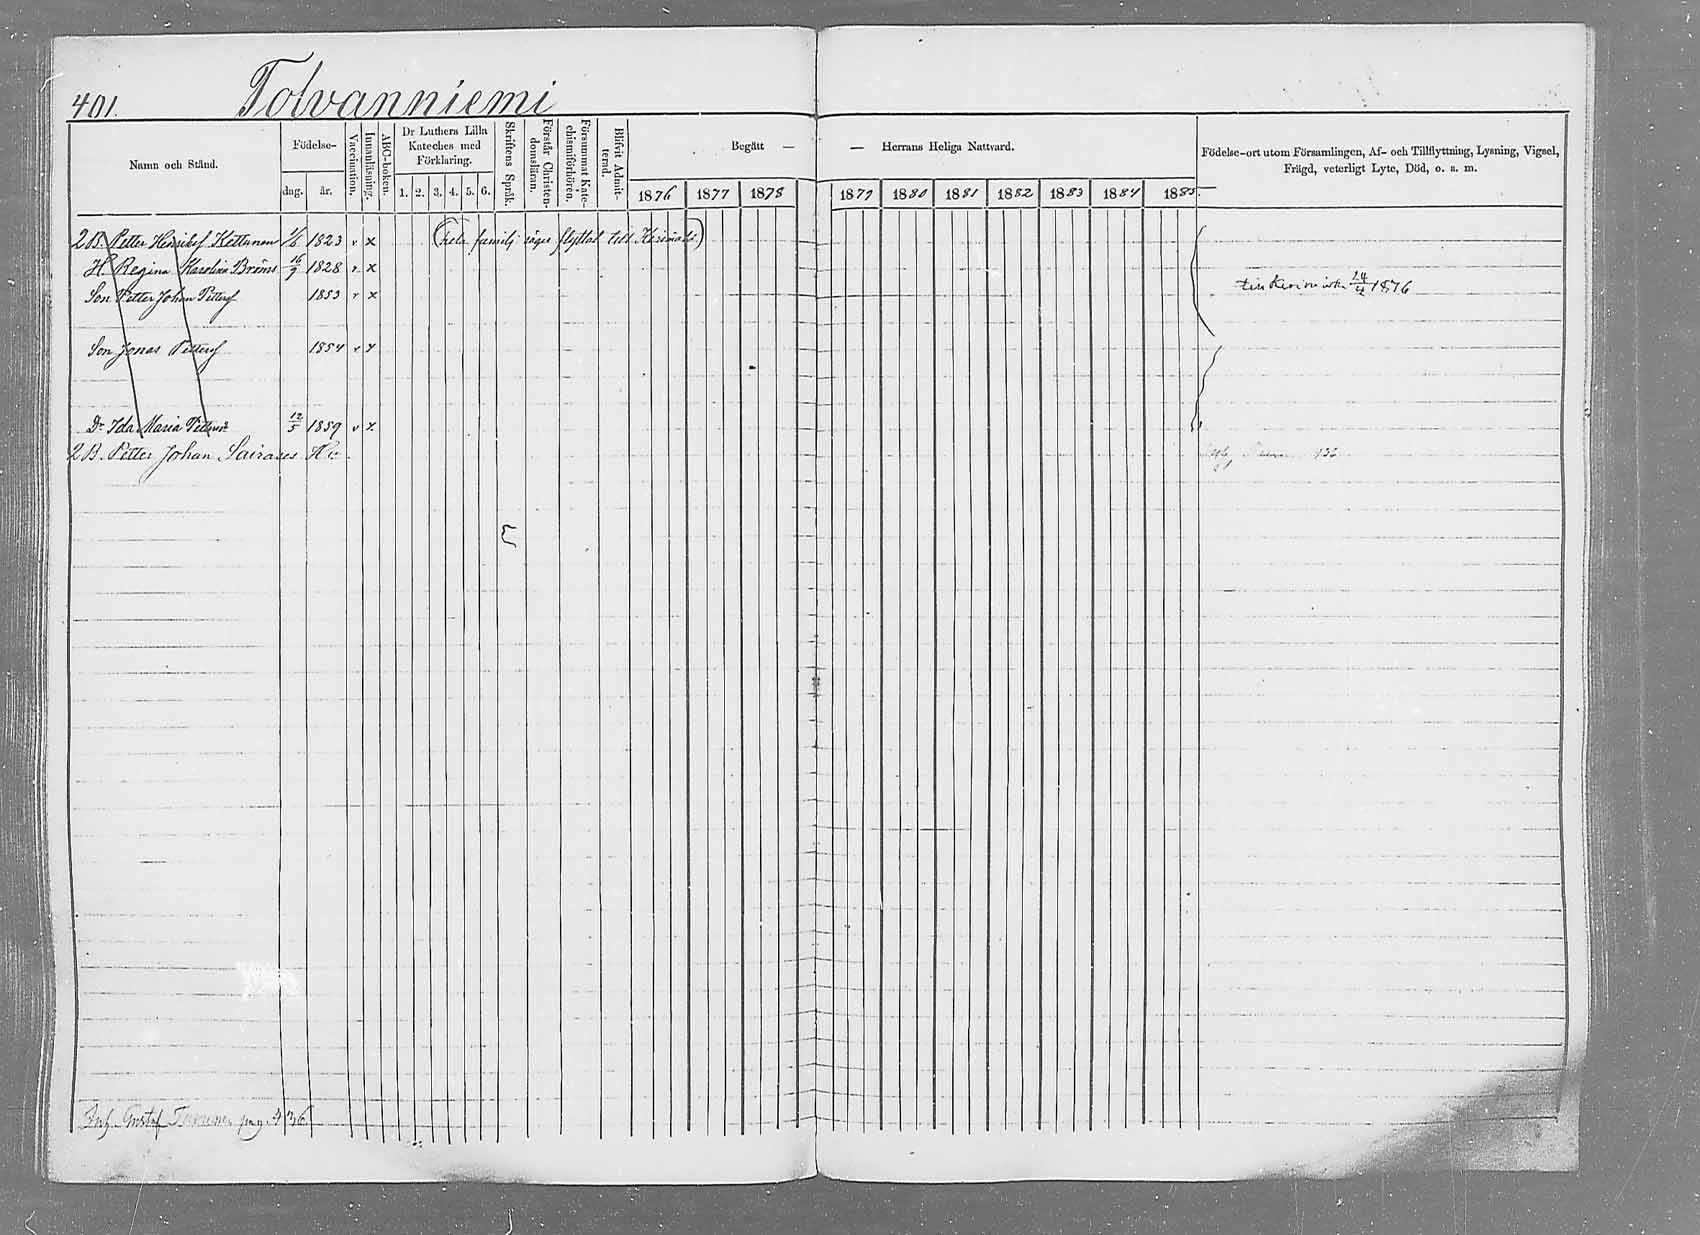 401. Tolvanniemi
Namn och Stånd.
Födelse-
dag. år.
Vaccination.
Innanläsning.
ABC-boken.
Dr Luthers Lilla
Kateches med
Förklaring.
1. 2. 3. 4. 5. 6.
Skriftens Språk.
Förstår Christen-
domsläran.
Försummat Kate-
chismiförhören.
Blifvit Admit-
terad.
Begått — — Herrans Heliga Nattvard.
1876 1877 1878 1879 1880 1881 1882 1883 1884 1885
Födelse-ort utom Församlingen, Af- och Tillflyttning, Lysning, Vigsel,
Frägd, veterligt Lyte, Död, o. a. m.
2 B. Petter Henriksf Kettunen 1/6 1823 v x (hela familj säges flyttat till Kerimäki)
H. Regina Karolina Bröms 16/9 1828 v x
till Kerimäki 24/4 1876
Son Petter Johan Pettersf 1853 v x
Son Jonas Pettersf 1854 v x
Dr Ida Maria 12/5 1859 v x
2 B. Petter Johan
136
Inh. Gustaf pag. 436